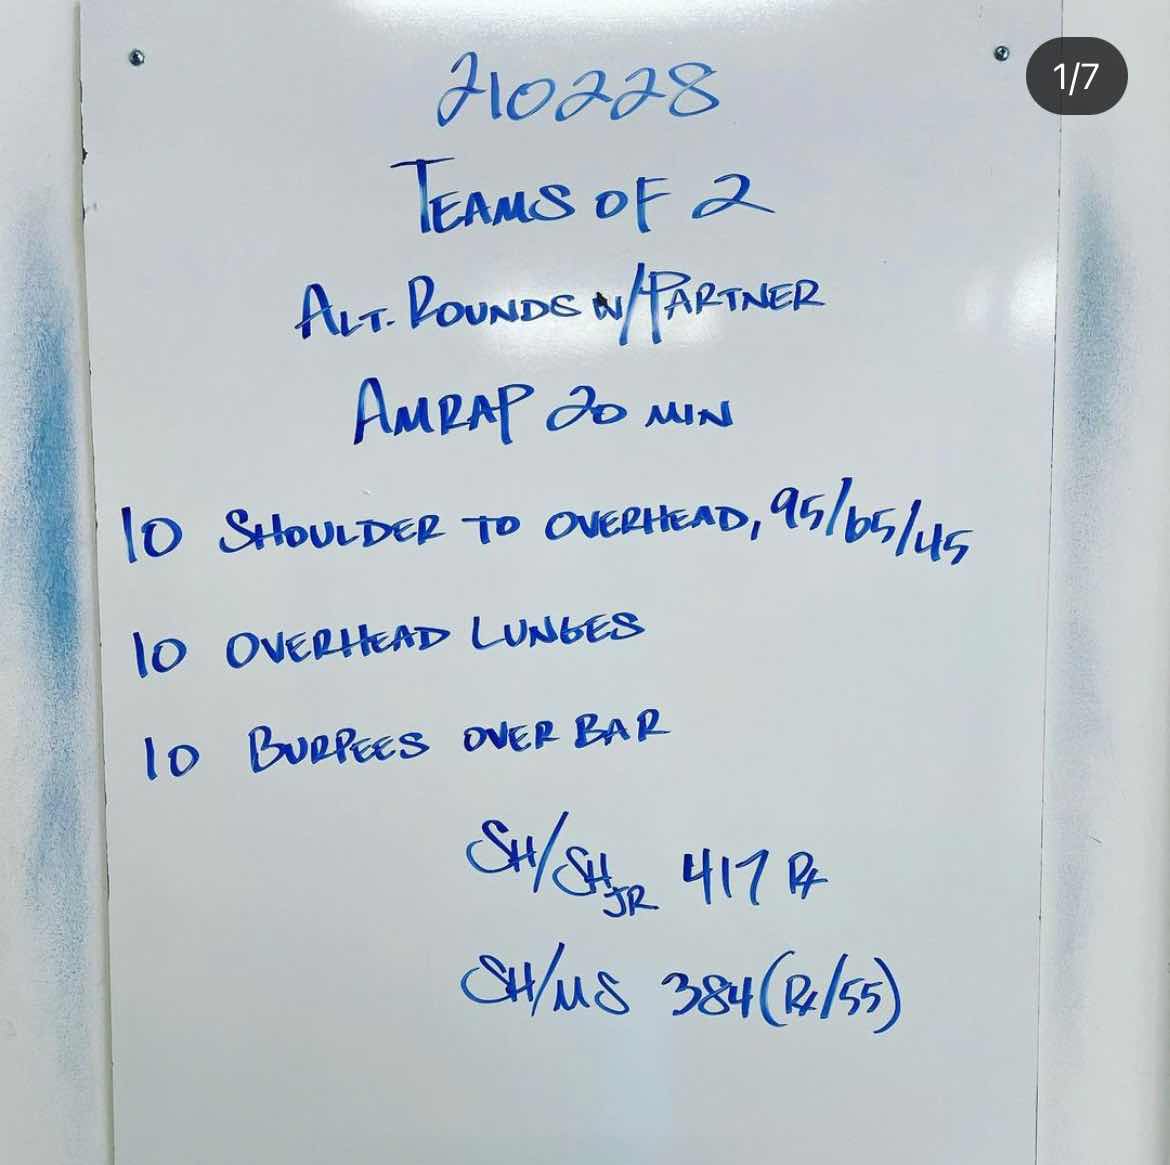 1/7
210228
TEAMS OF 2
ALT. ROUNDS W/PARTNER
AMRAP 20 MIN
10 SHOULDER TO OVERHEAD, 95/65/45
10 OVERHEAD LUNGES
10 BURPEES OVER BAR
SH/SH JR 417 Rx
SH/MS 384 (Rx/55)